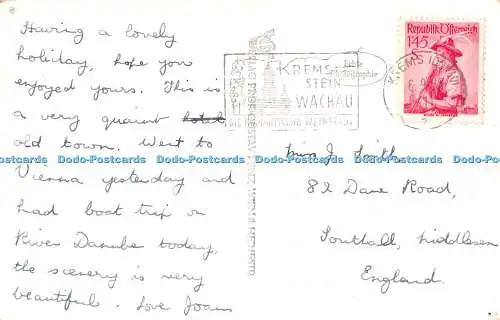 Having a lovely
holiday, hope you
enjoyed yours. This is
a very quaint hotel
old town. Went to
Vienna yesterday and
had boat trip on
River Danube today,
the scenery is very
beautiful. Love Joan
KREMS
STEIN
WACHAU
KREMS (DONAU)
Republik Österreich
1S45
Miss J
82 Dane Road,
Southall, Middlesex
England.
Dodo-Postcards Dodo-Postcards Dodo-Postcards Dodo-Postcards Dodo-Postcards Dodo-Postcards